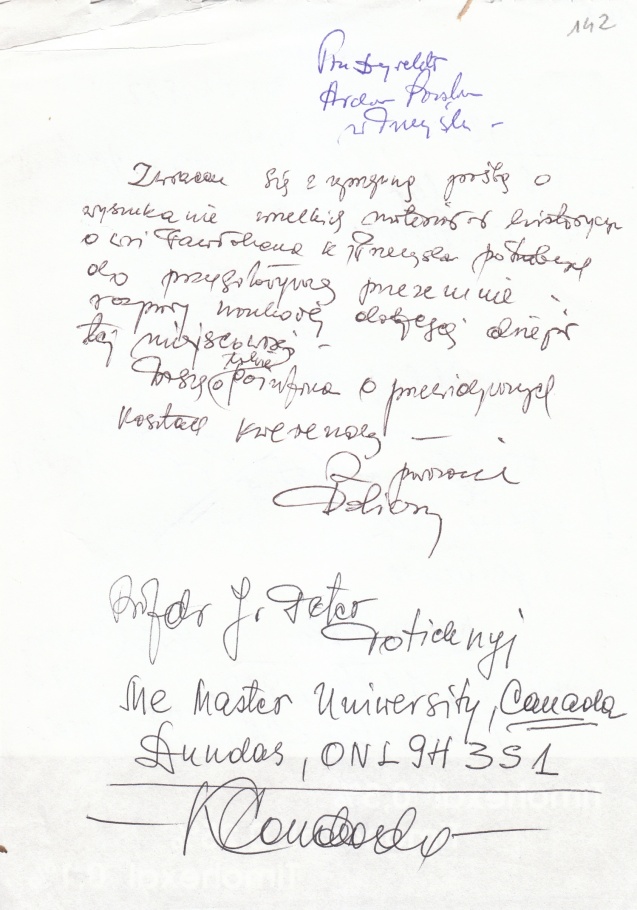 142
Pan Dyrektor
w Przemyślu -
Zwracam się z uprzejmą prośbą o
wyszukanie wszelkich materiałów historycznych
o wsi Pawłokoma k/Przemyśla potrzebnych
do przygotowywanej przeze mnie
rozprawy naukowej dotyczącej dziejów
tej miejscowości -
Proszę o
także
o przewidywanych
kosztach kwerendy —
Z poważaniem
Prof dr J. Peter
Potichnyj
Mc Master University, Canada
Dundas, ON L9H 3S1